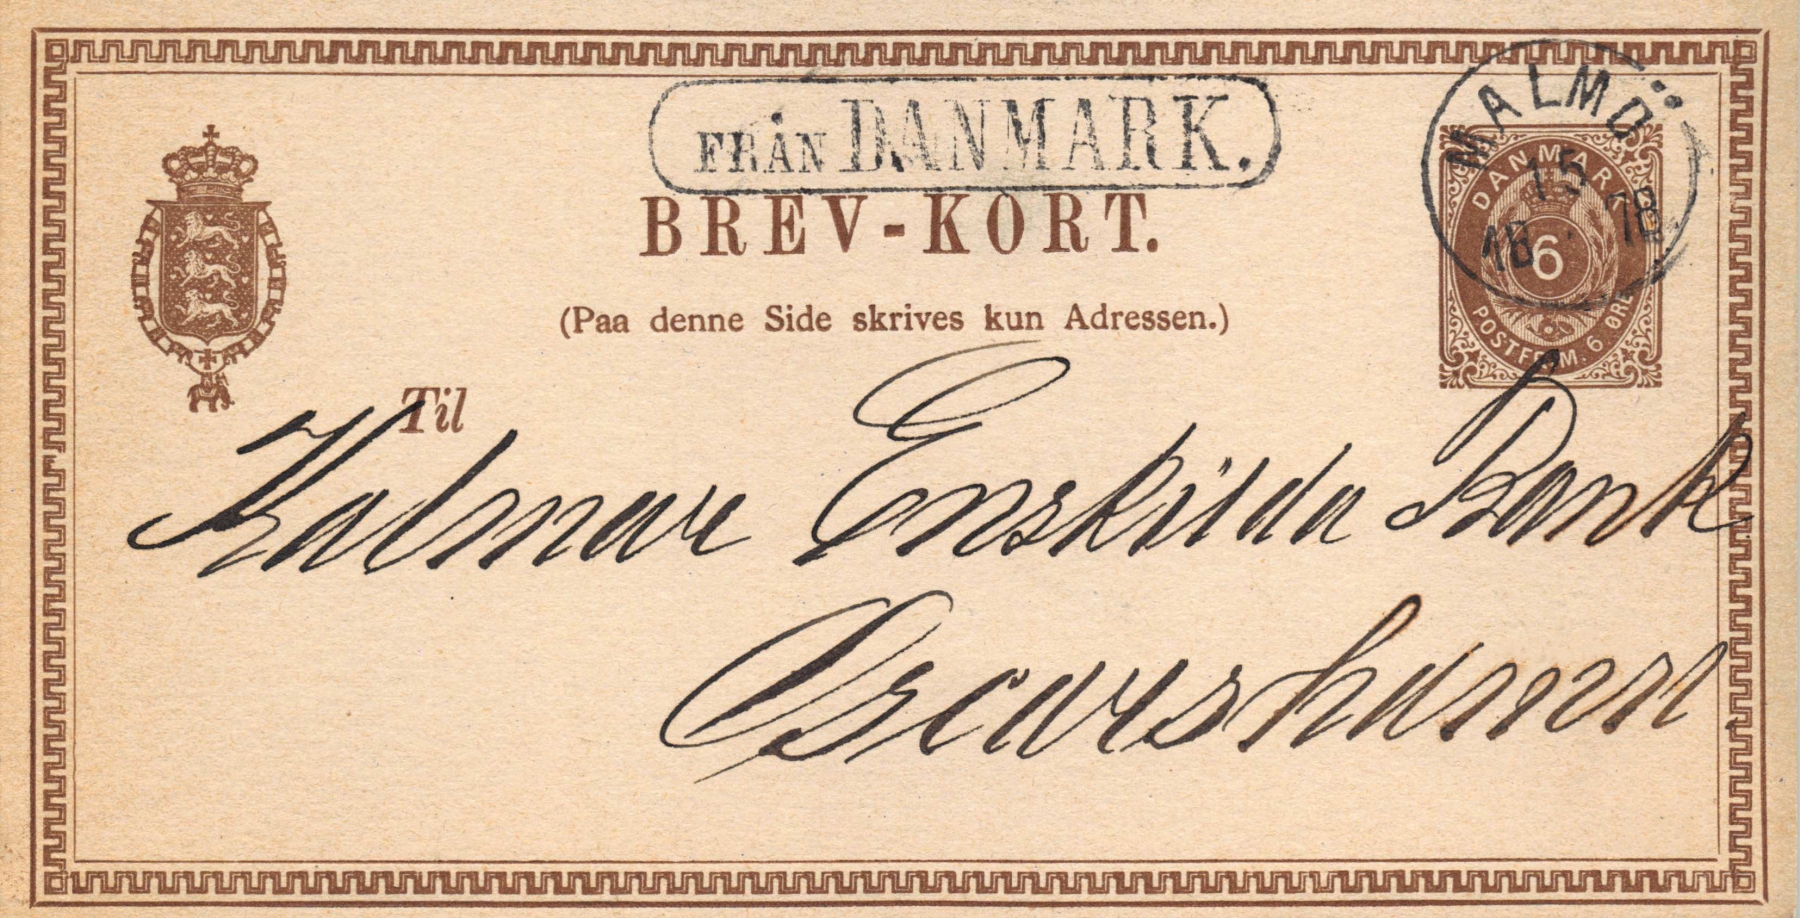 FRÅN DANMARK.
MALMÖ
15
10 78
DANMARK
6
POSTFRIM. 6 ØRE
BREV-KORT.
(Paa denne Side skrives kun Adressen.)
Til
Kalmar Enskilda Bank
Oscarshamn